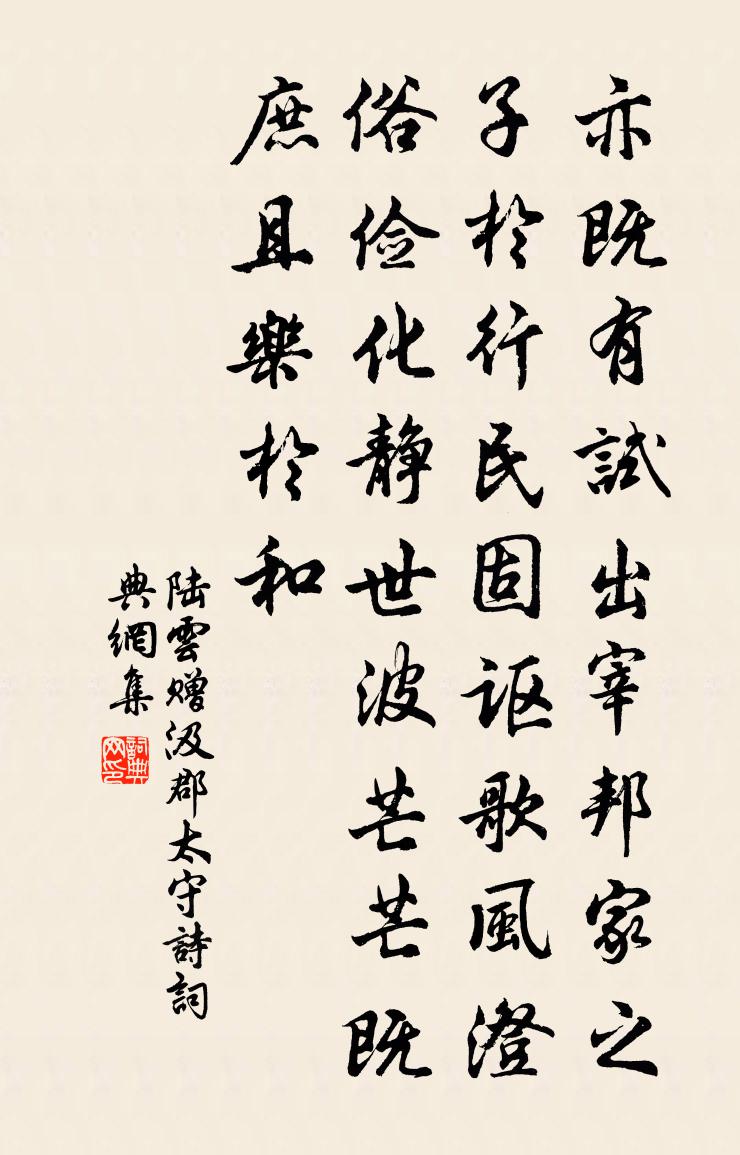 亦既有試出宰邦家之
子於行民固讴歌風澄
俗儉化靜世波芒芒既
庶且樂於和
陆雲赠汲郡太守詩詞
典網集
詞典
网印